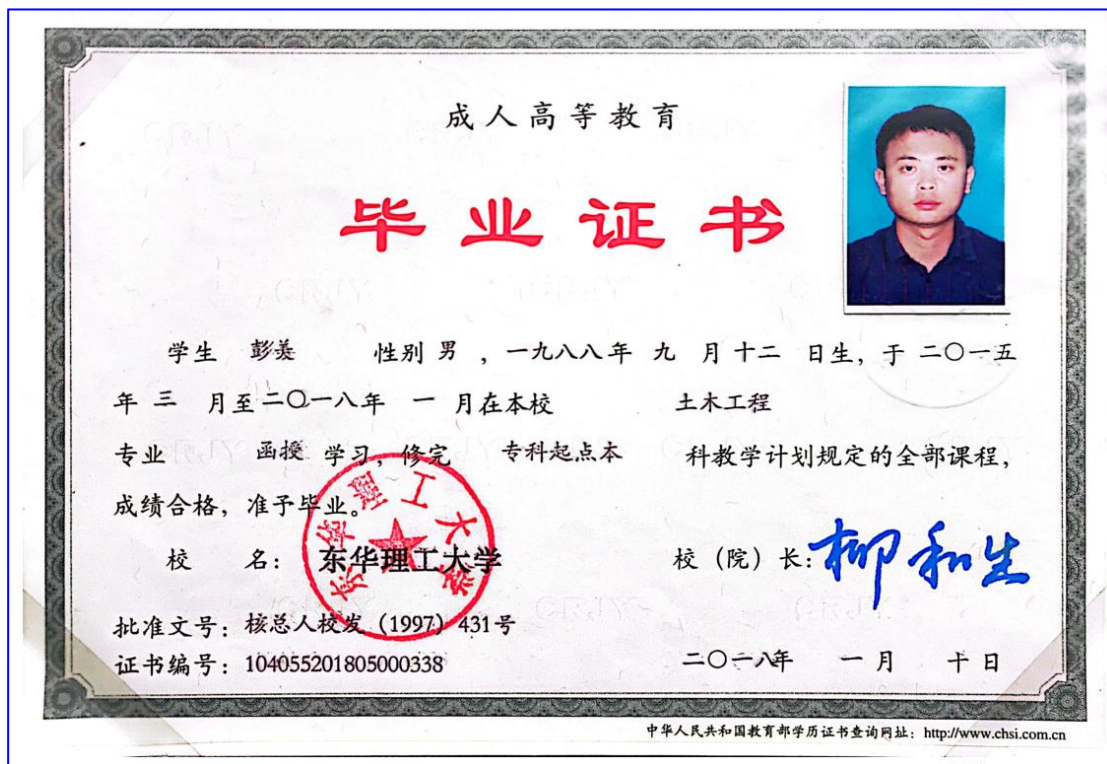 成人高等教育
毕业证书
学生 彭羕 性别 男 ，一九八八年 九 月十二 日生，于 二〇一五
年 三 月至二〇一八年 一 月在本校 土木工程
专业 函授 学习，修完 专科起点本 科教学计划规定的全部课程，
成绩合格，准予毕业。
校 名：东华理工大学
东华理工大学
校（院）长：柳和生
批准文号：核总人校发（1997）431号
证书编号：104055201805000338
二〇一八年 一月 十日
中华人民共和国教育部学历证书查询网址：http://www.chsi.com.cn